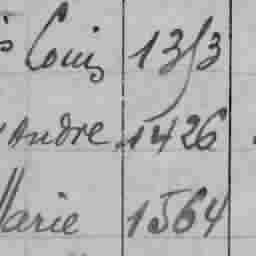 s Louis 1353
André 1426
Marie 1564